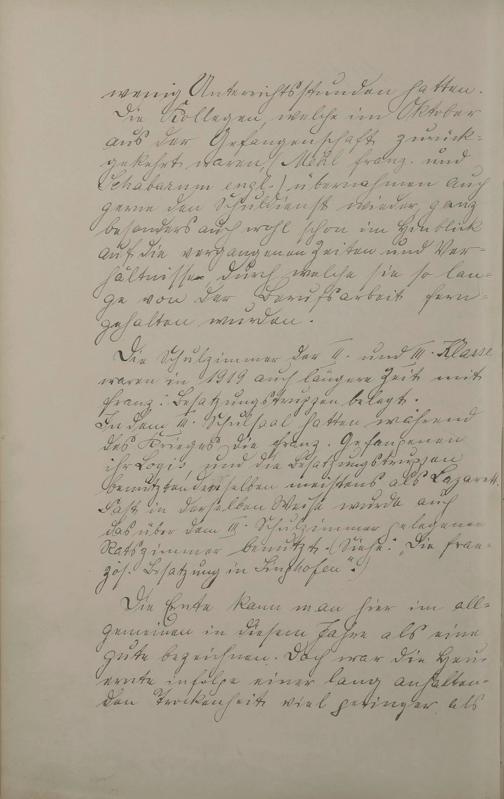 wenig Unterrichtsstunden hatten.
Die Kollegen, welche im Oktober
aus der Gefangenschaft zurück-
gekehrt waren, ( franz. und
engl.) übernahmen auch
gerne den Schuldienst wieder, ganz
besonders auch wohl schon im Hinblick
auf die vergangenen Zeiten und Ver-
hältnisse, durch welche sie so lan-
ge von der Berufsarbeit fern-
gehalten wurden.
Die Schulzimmer der II. und III. Klasse
waren in 1919 auch längere Zeit mit
franz. Besatzungstruppen belegt.
In dem III. Schulsaal hatten während
des Krieges die franz. Gefangenen
ihr Logis und die Besatzungstruppen
benutzten denselben meistens als Lazarett.
Fast in derselben Weise wurde auch
das über dem III. Schulzimmer gelegene
Ratszimmer benutzt. (Siehe: "Die fran-
zös. Besatzung in Singhofen".)
Die Ernte kann man hier im all-
gemeinen in diesem Jahre als eine
gute bezeichnen. Doch war die Heu-
ernte infolge einer lang anhalten-
den Trockenheit viel geringer als